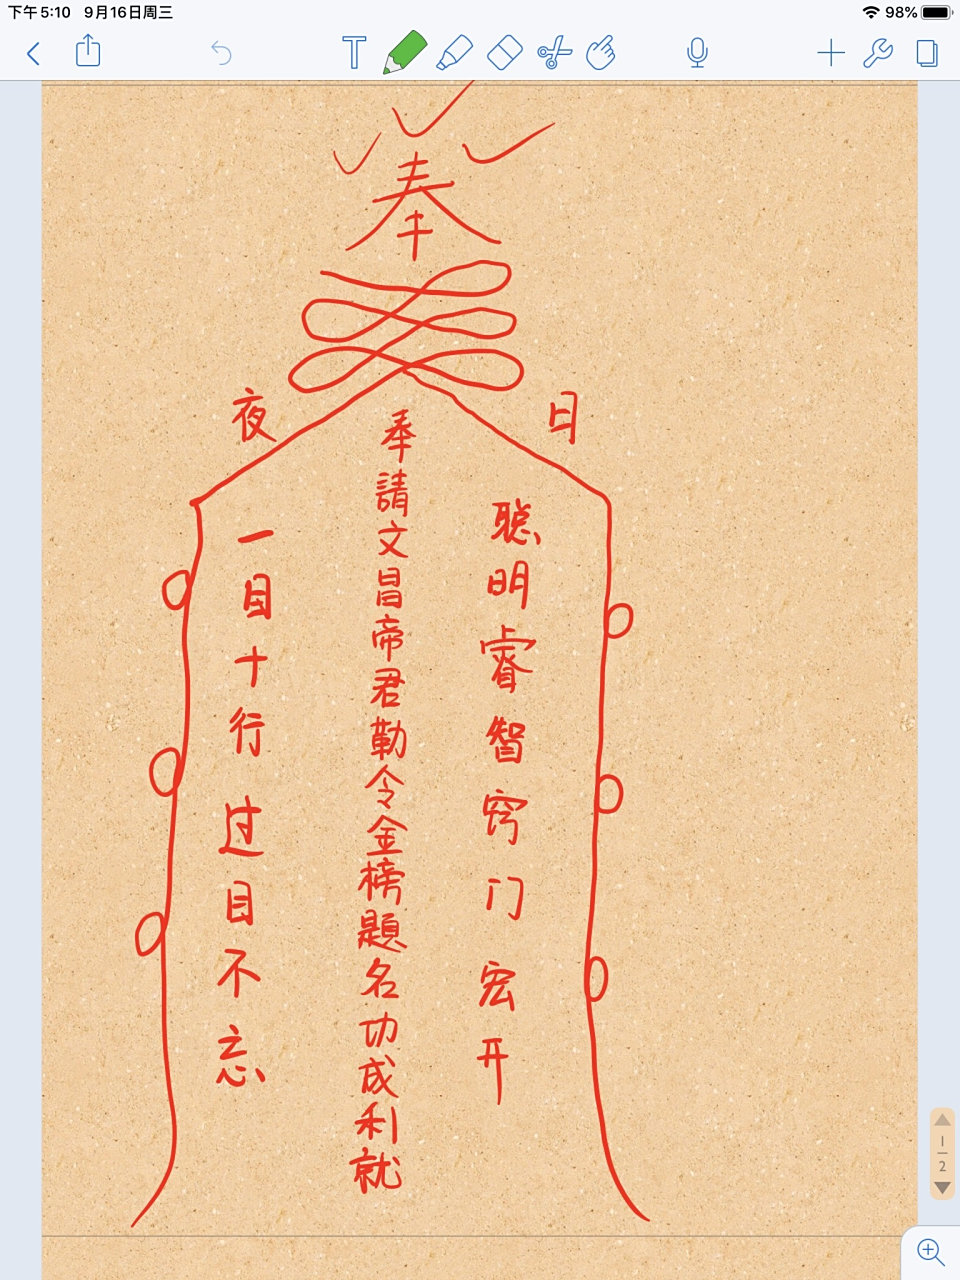 下午5:10 9月16日周三
98%
T
奉
日
夜
聪明睿智窍门宏开
奉請文昌帝君勅令金榜題名功成利就
一目十行过目不忘
1
2